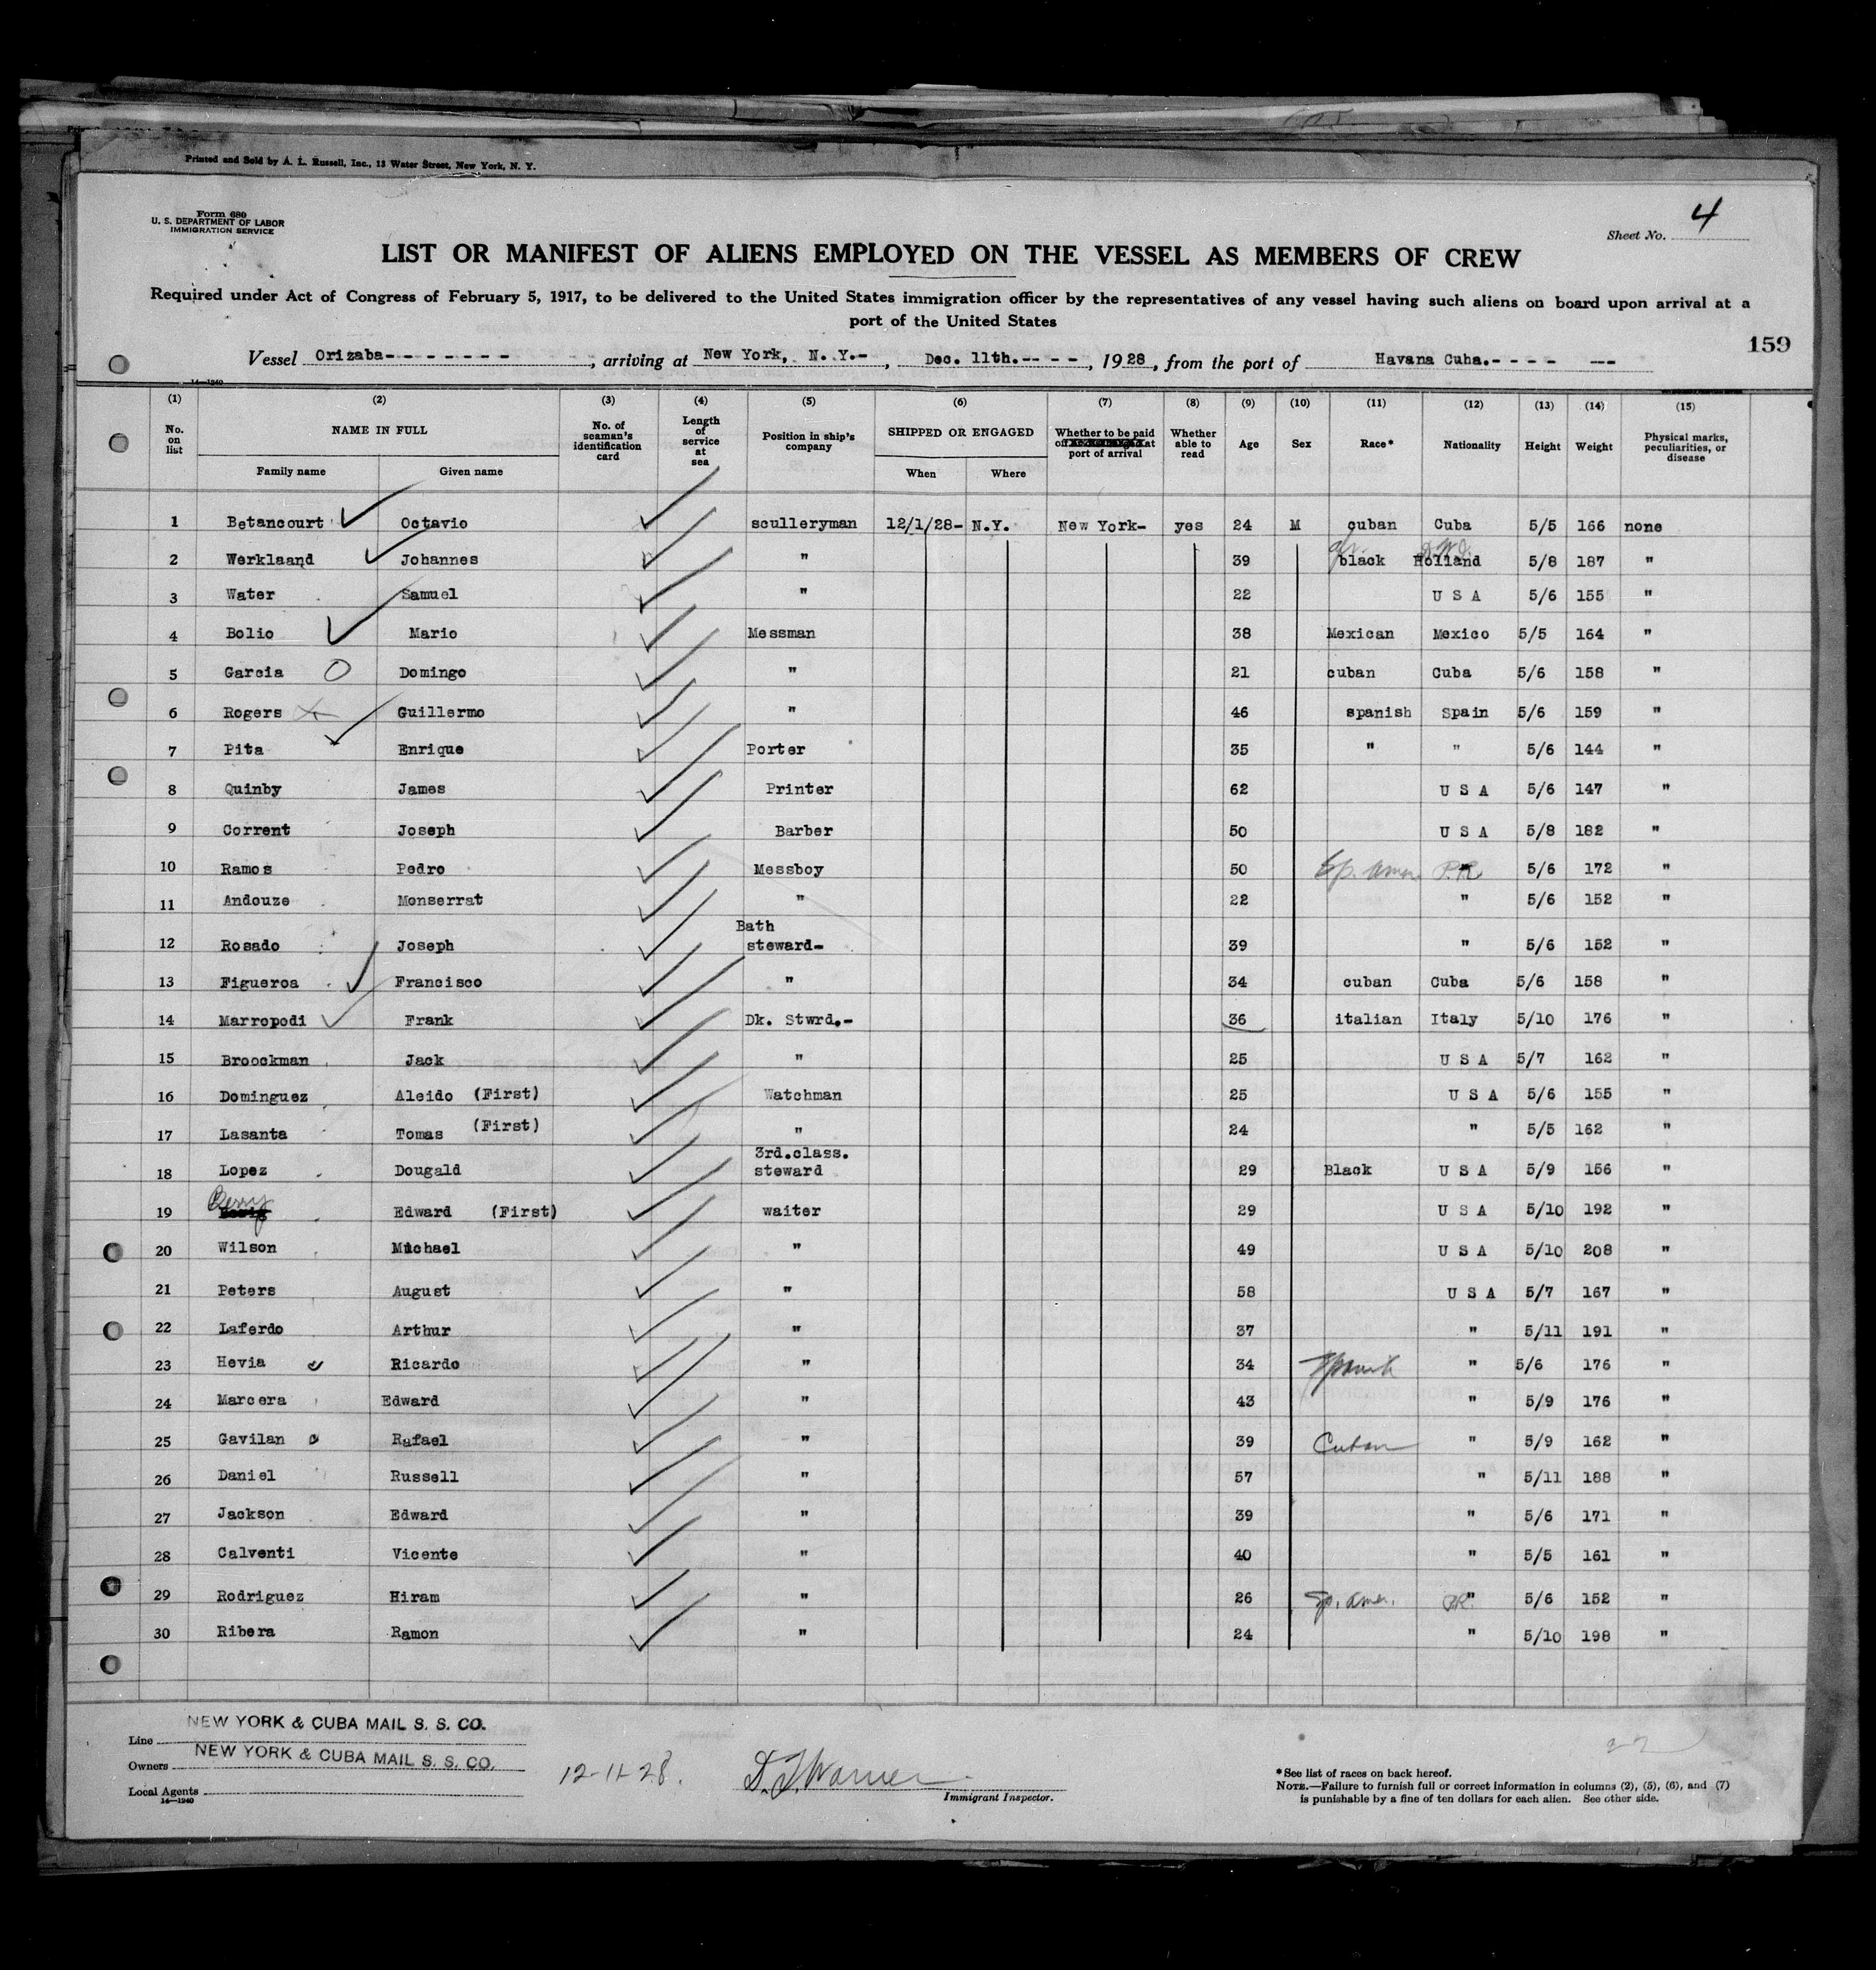 Printed and Sold by A. L. Russell, Inc., 13 Water Street, New York, N. Y.
Form 680
U. S. DEPARTMENT OF LABOR
IMMIGRATION SERVICE
Sheet No. 4
LIST OR MANIFEST OF ALIENS EMPLOYED ON THE VESSEL AS MEMBERS OF CREW
Required under Act of Congress of February 5, 1917, to be delivered to the United States immigration officer by the representatives of any vessel having such aliens on board upon arrival at a
port of the United States
159
Vessel Orizaba- - - - - - - -, arriving at New York, N. Y.-, Dec. 11th.-- - -, 1928, from the port of Havana Cuba.- - - - ---
14—1240
(1) (2) (3) (4) (5) (6) (7) (8) (9) (10) (11) (12) (13) (14) (15)
No. on list NAME IN FULL No. of seaman's identification card Length of service at sea Position in ship's company SHIPPED OR ENGAGED Whether to be paid off at port of arrival Whether able to read Age Sex Race* Nationality Height Weight Physical marks, peculiarities, or disease
Family name Given name When Where
1 Betancourt Octavio sculleryman 12/1/28- N.Y. New York- yes 24 M cuban Cuba 5/5 166 none
2 Werklaand Johannes " 39 afr. black D.W.I. Holland 5/8 187 "
3 Water Samuel " 22 U S A 5/6 155 "
4 Bolio Mario Messman 38 Mexican Mexico 5/5 164 "
5 Garcia Domingo " 21 cuban Cuba 5/6 158 "
6 Rogers Guillermo " 46 spanish Spain 5/6 159 "
7 Pita Enrique Porter 35 " " 5/6 144 "
8 Quinby James Printer 62 U S A 5/6 147 "
9 Corrent Joseph Barber 50 U S A 5/8 182 "
10 Ramos Pedro Messboy 50 Sp. amer. P.R. " 5/6 172 "
11 Andouze Monserrat " 22 " 5/6 152 "
12 Rosado Joseph Bath steward- 39 " 5/6 152 "
13 Figueroa Francisco " 34 cuban Cuba 5/6 158 "
14 Marropodi Frank Dk. Stwrd.- 36 italian Italy 5/10 176 "
15 Broockman Jack " 25 U S A 5/7 162 "
16 Dominguez Aleido (First) Watchman 25 U S A 5/6 155 "
17 Lasanta Tomas (First) " 24 " 5/5 162 "
18 Lopez Dougald 3rd.class. steward 29 Black U S A 5/9 156 "
19 Berry Edward (First) waiter 29 U S A 5/10 192 "
20 Wilson Michael " 49 U S A 5/10 208 "
21 Peters August " 58 U S A 5/7 167 "
22 Laferdo Arthur " 37 " 5/11 191 "
23 Hevia Ricardo " 34 Spanish " 5/6 176 "
24 Marcera Edward " 43 " 5/9 176 "
25 Gavilan Rafael " 39 Cuban " 5/9 162 "
26 Daniel Russell " 57 " 5/11 188 "
27 Jackson Edward " 39 " 5/6 171 "
28 Calventi Vicente " 40 " 5/5 161 "
29 Rodriguez Hiram " 26 Sp. amer. P.R. " 5/6 152 "
30 Ribera Ramon " 24 " 5/10 198 "
Line NEW YORK & CUBA MAIL S. S. CO.
Owners NEW YORK & CUBA MAIL S. S. CO.
Local Agents
14—1240
12-11-28.
D. J. Warner
Immigrant Inspector.
*See list of races on back hereof.
NOTE.—Failure to furnish full or correct information in columns (2), (5), (6), and (7)
is punishable by a fine of ten dollars for each alien. See other side.
22